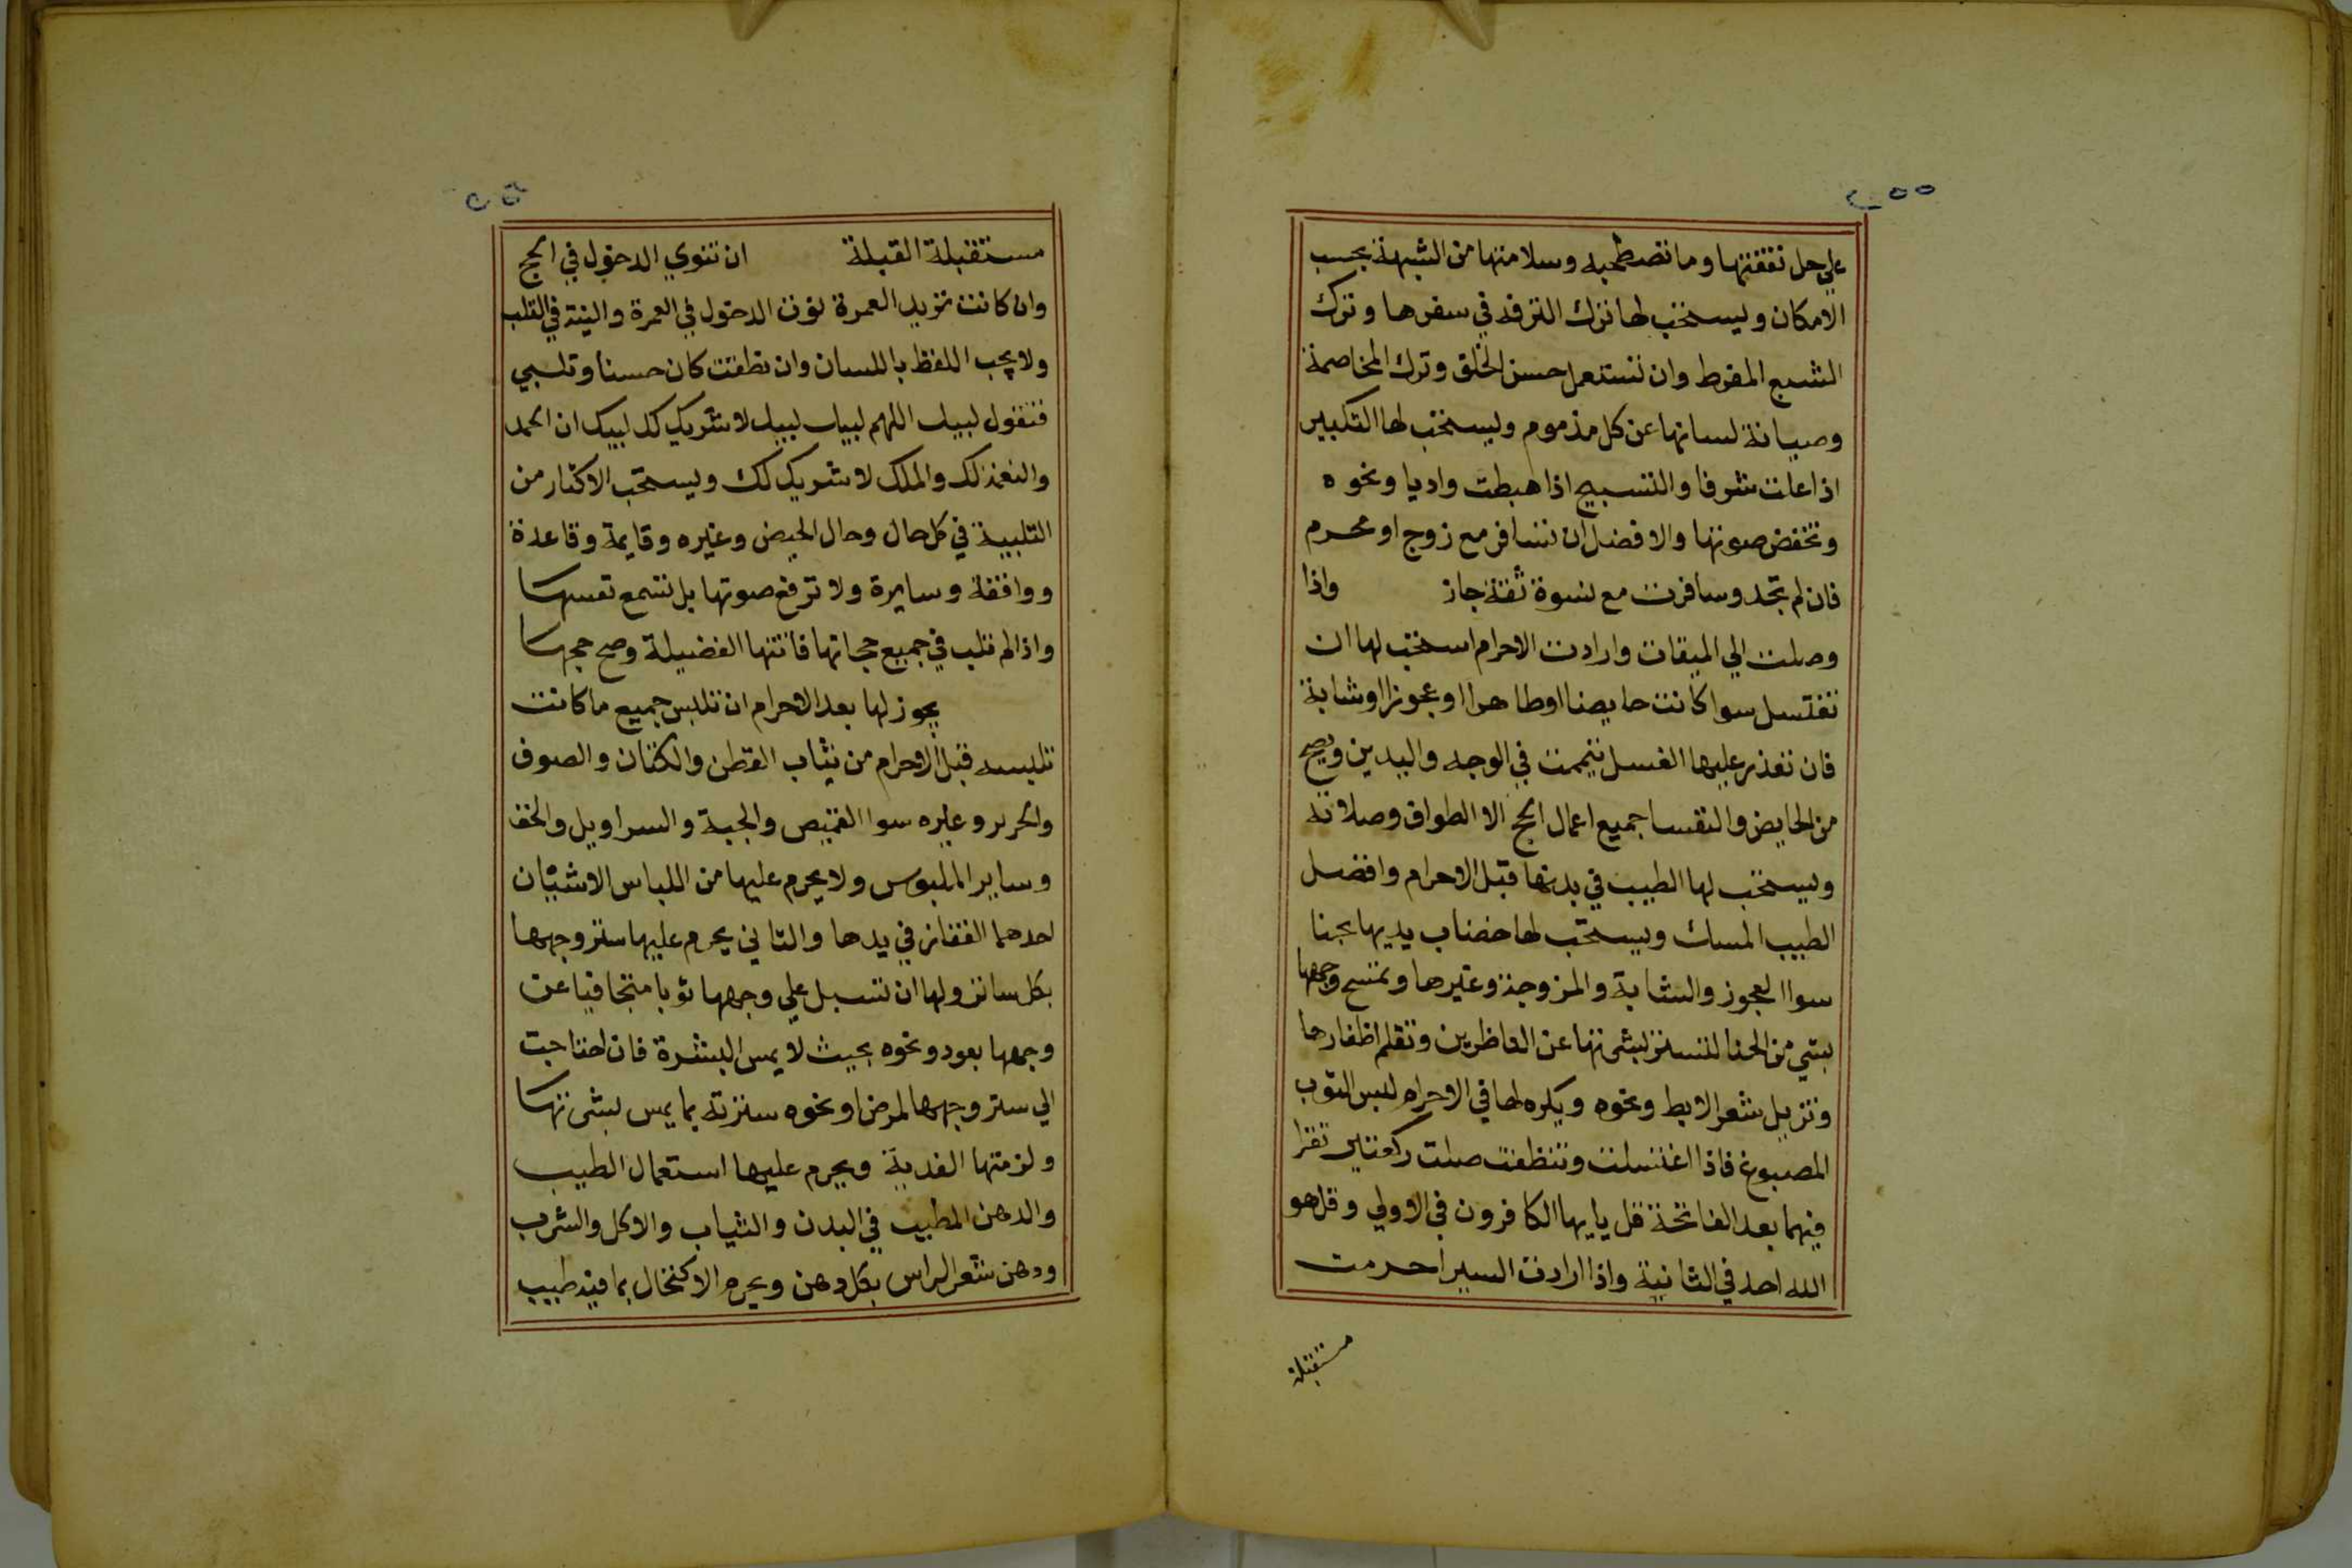 علي حل نفقتها وما تصطحبه وسلامتها من الشبهة بحسب
الامكان ويستحب لها ترك الترفه في سفرها وترك
الشبع المفرط وان تستعمل حسن الخلق وترك المخاصمة
وصيانة لسانها عن كل مذموم ويستحب لها التكبير
اذا علت شرفا والتسبيح اذا هبطت واديا ونحوه
وتخفض صوتها والافضل ان تسافر مع زوج او محرم
فان لم تجد وسافرت مع نسوة ثقة جاز واذا
وصلت الي الميقات وارادت الاحرام استحب لها ان
تغتسل سوا كانت حايضا او طاهرا او عجوزا او شابة
فان تعذر عليها الغسل تيممت في الوجه واليدين ويصح
من الحايض والنفسا جميع اعمال الحج الا الطواف وصلاته
ويستحب لها الطيب في بدنها قبل الاحرام وافضل
الطيب المسك ويستحب لها خضاب يديها بحنا
سوا العجوز والشابة والمزوجة وغيرها وتمسح وجهها
بشي من الحنا لتستر بشرتها عن الناظرين وتقلم اظفارها
وتزيل شعر الابط ونحوه ويكره لها في الاحرام لبس الثوب
المصبوغ فاذا اغتسلت وتنظفت صلت ركعتين تقرا
فيهما بعد الفاتحة قل يايها الكافرون في الاولي وقل هو
الله احد في الثانية واذا ارادت السير احرمت
مستقبلة
مستقبلة القبلة ان تنوي الدخول في الحج
وان كانت تريد العمرة نوت الدخول في العمرة والنية في القلب
ولا يجب اللفظ باللسان وان نطقت كان حسنا وتلبي
فتقول لبيك اللهم لبيك لبيك لا شريك لك لبيك ان الحمد
والنعمة لك والملك لا شريك لك ويستحب الاكثار من
التلبية في كل حال وحال الحيض وغيره وقايمة وقاعدة
وواقفة وسايرة ولا ترفع صوتها بل تسمع نفسها
واذا لم تلب في جميع حجاتها فاتتها الفضيلة وصح حجها
يجوز لها بعد الاحرام ان تلبس جميع ما كانت
تلبسه قبل الاحرام من ثياب القطن والكتان والصوف
والحرير وغيره سوا القميص والجبة والسراويل والخف
وساير الملبوس ولا يحرم عليها من اللباس الا شيئان
احدهما القفاز في يدها والثاني يحرم عليها ستر وجهها
بكل ساتر ولها ان تسبل علي وجهها ثوبا متجافيا عن
وجهها بعود ونحوه بحيث لا يمس البشرة فان احتاجت
الي ستر وجهها لمرض او نحوه سترته بما يمس بشرتها
ولزمتها الفدية ويحرم عليها استعمال الطيب
والدهن المطيب في البدن والثياب والاكل والشرب
ودهن شعر الراس بكل دهن ويحرم الاكتحال بما فيه طيب